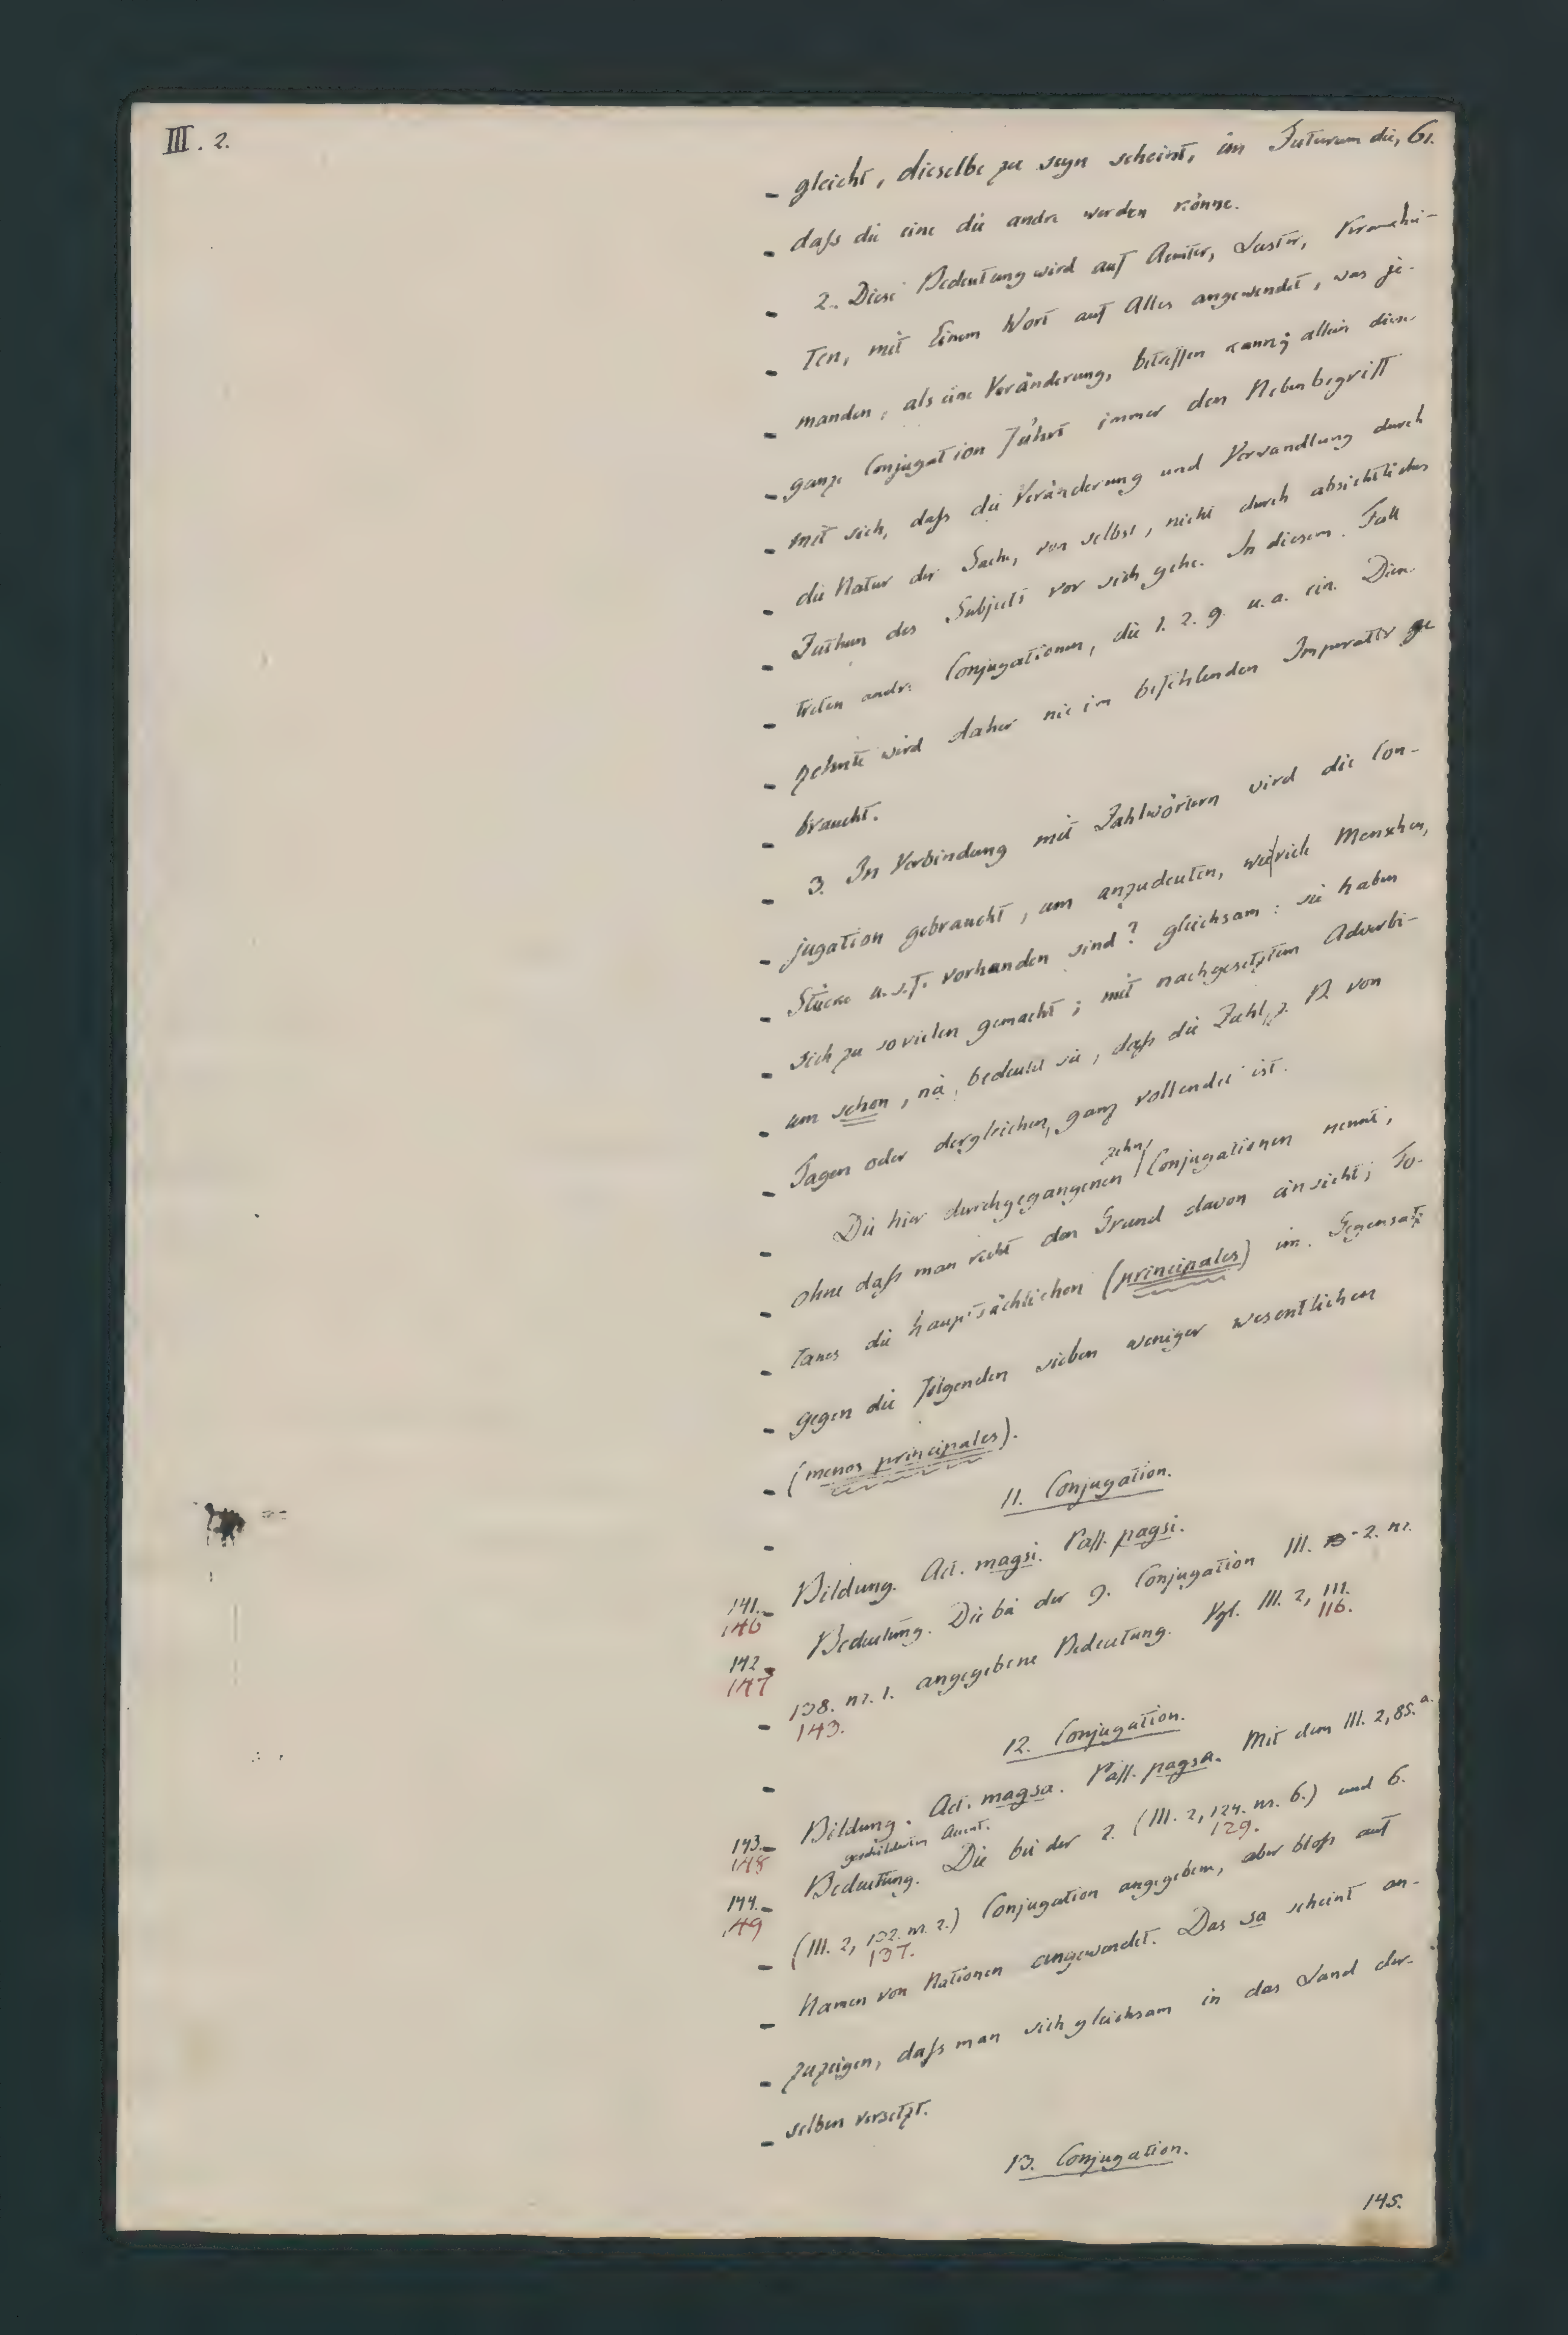 III. 2.
61.
gleicht, dieselbe zu seyn scheint, im Futurum die,
daſs die eine die andre werden könne.
2. Diese Bedeutung wird auf Aemter, Laster,
ten, mit Einem Wort auf Alles angewendet, was je-
manden, als eine Veränderung, betreffen kann; allein diese
ganze Conjugation führt immer den Nebenbegriff
mit sich, daſs die Veränderung und Verwandlung durch
die Natur der Sache, von selbst, nicht durch absichtliches
Zuthun des Subjects vor sich gehe. In diesem Fall
treten andre Conjugationen, die 1. 2. 9. u. a. ein. Diese
zehnte wird daher nie im befehlenden Imperativ ge
braucht.
3. In Verbindung mit Zahlwörtern wird die Con-
jugation gebraucht, um anzudeuten, wie viele Menschen,
Stücke u. s. f. vorhanden sind? gleichsam: sie haben
sich zu so vielen gemacht; mit nachgesetztem Adverbi-
um schon, nà, bedeutet sie, daſs die Zahl, z. B. von
Tagen oder dergleichen, ganz vollendet ist.
zehn
Die hier durchgegangenen Conjugationen nennt,
ohne daſs man recht den Grund davon einsieht, To-
tanes die hauptsächlichen (principales) im Gegensatz
gegen die folgenden sieben weniger wesentlichen
(menos principales).
11. Conjugation.
141. Bildung. Act. magsi. Paſſ. pagsi.
146
142 Bedeutung. Die bei der 9. Conjugation III. 2. nr.
147
138. nr. 1. angegebene Bedeutung. Vgl. III. 2, 111.
143. 116.
12. Conjugation.
143. Bildung. Act. magsa. Paſſ. pagsa. Mit dem III. 2, 85.a.
148 geschilderten Accent.
144. Bedeutung. Die bei der 2. (III. 2, 124. nr. 6.) und 6.
149 129.
(III. 2, 132. nr. 2.) Conjugation angegebene, aber bloſs auf
137.
Namen von Nationen angewendet. Das sa scheint an-
zuzeigen, daſs man sich gleichsam in das Land der-
selben versetzt.
13. Conjugation.
145.